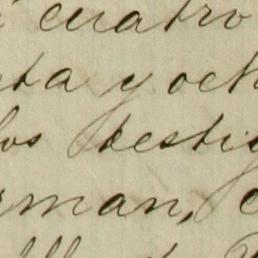 cuatro
ta y och
los testig
rman,